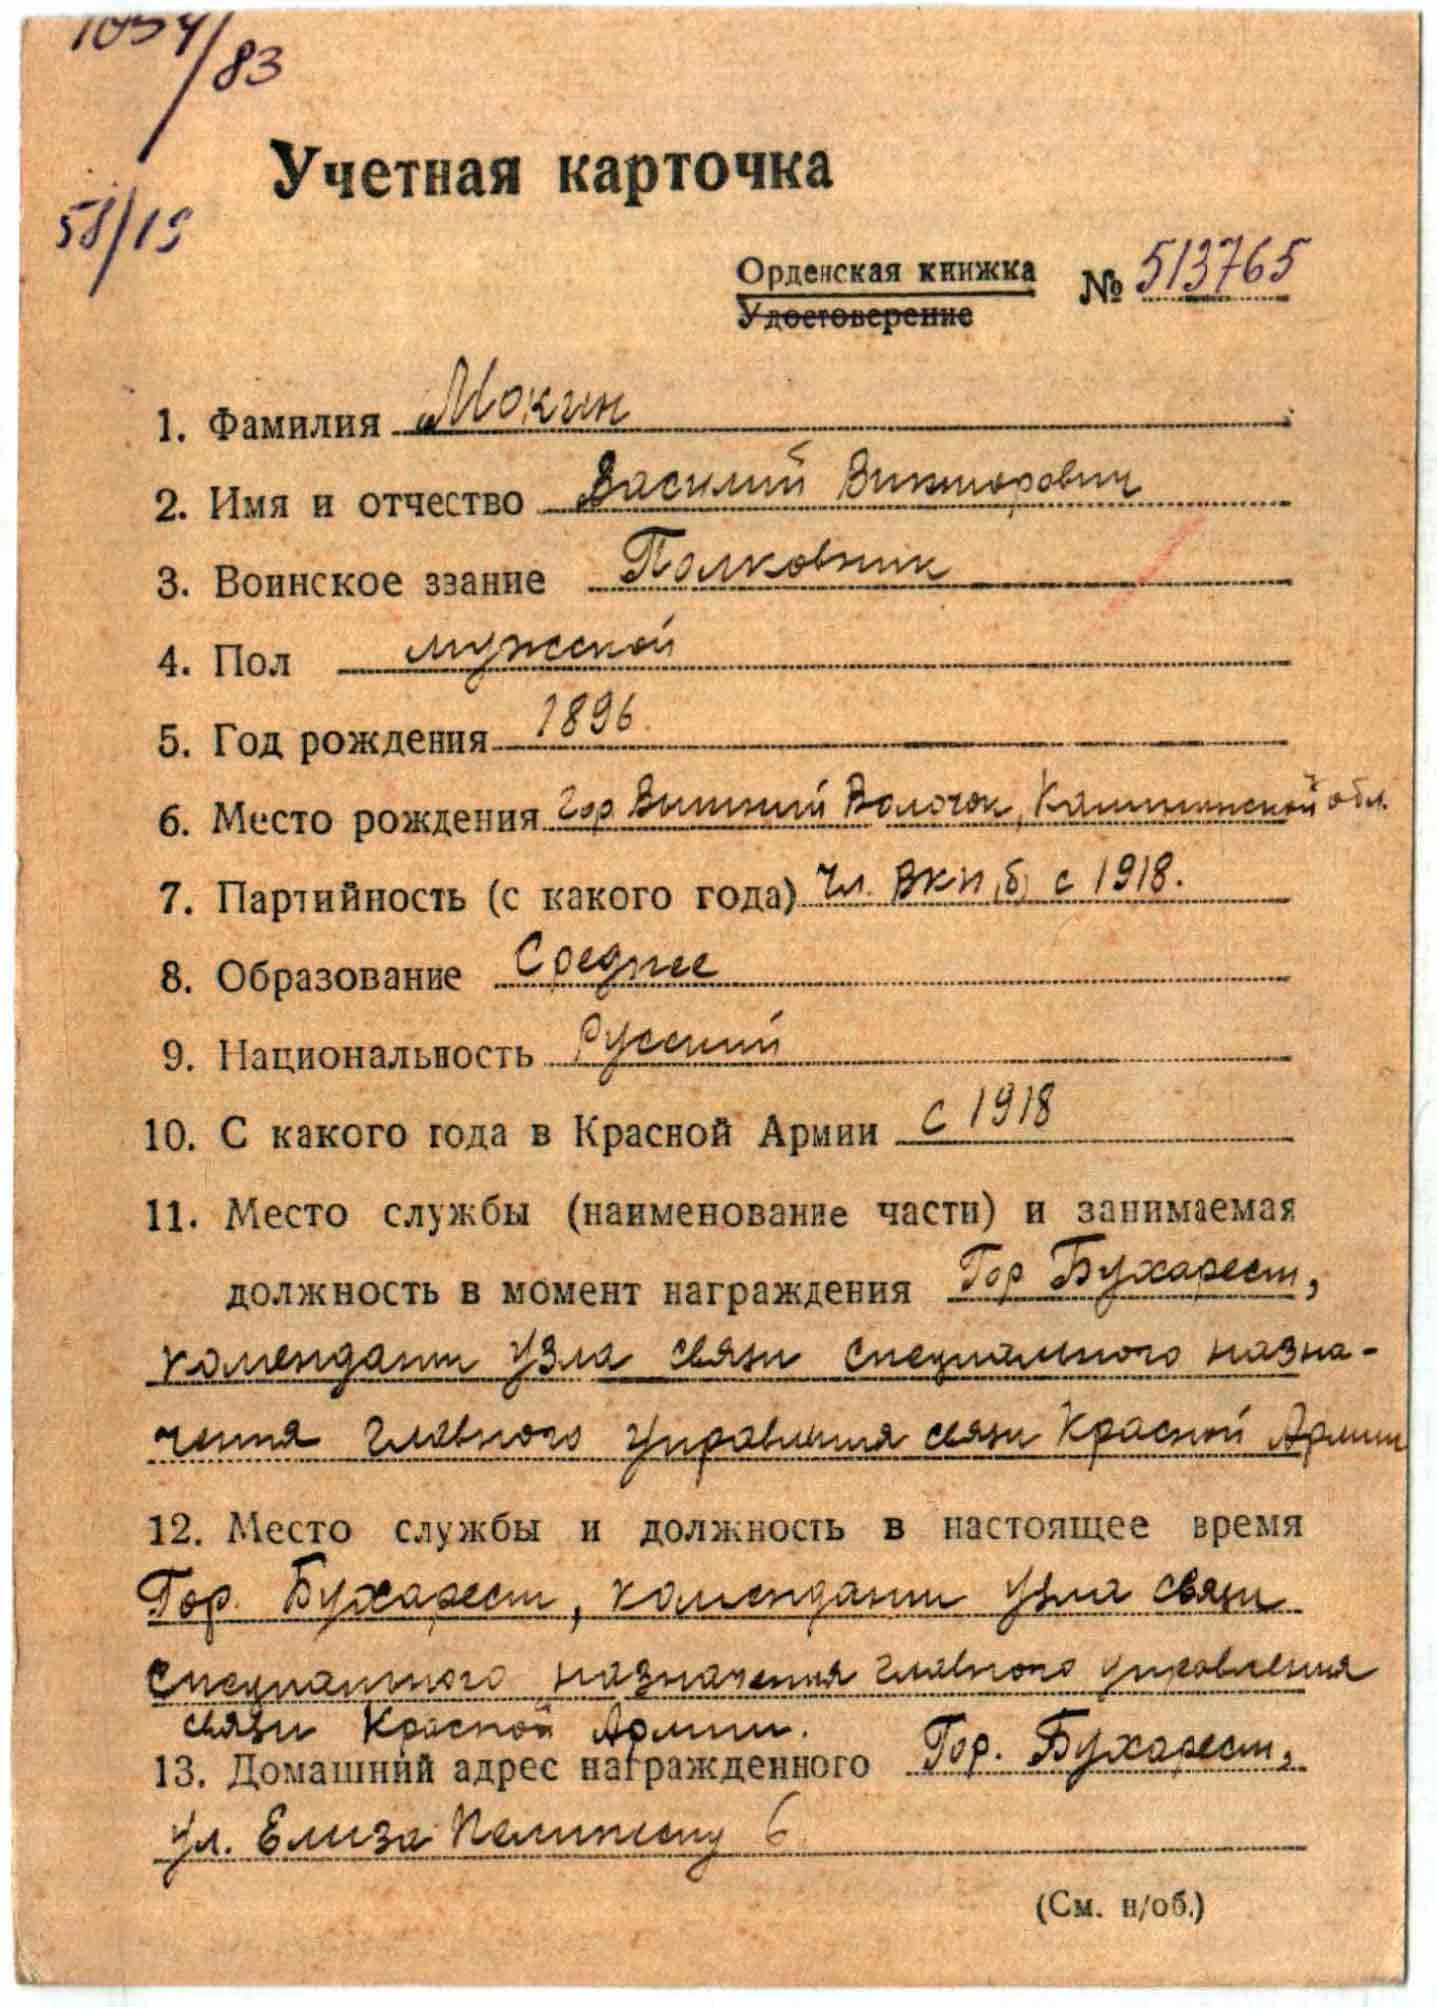 1054/83
Учетная карточка
58/15
Орденская книжка № 513765
Удостоверение
1. Фамилия Мокин
2. Имя и отчество Василий Викторович
3. Воинское звание Полковник
4. Пол мужской
5. Год рождения 1896.
6. Место рождения гор Вышний Волочок, Калининской обл.
7. Партийность (с какого года) Чл. ВКП(б) с 1918.
8. Образование Среднее
9. Национальность Русский
10. С какого года в Красной Армии с 1918
11. Место службы (наименование части) и занимаемая
должность в момент награждения Гор Бухарест,
комендант узла связи специального назна-
чения главного управления связи Красной Армии
12. Место службы и должность в настоящее время
Гор. Бухарест, комендант узла связи
специального назначения главного управления
связи Красной Армии.
13. Домашний адрес награжденного Гор. Бухарест,
ул. Елиза 6
(См. н/об.)